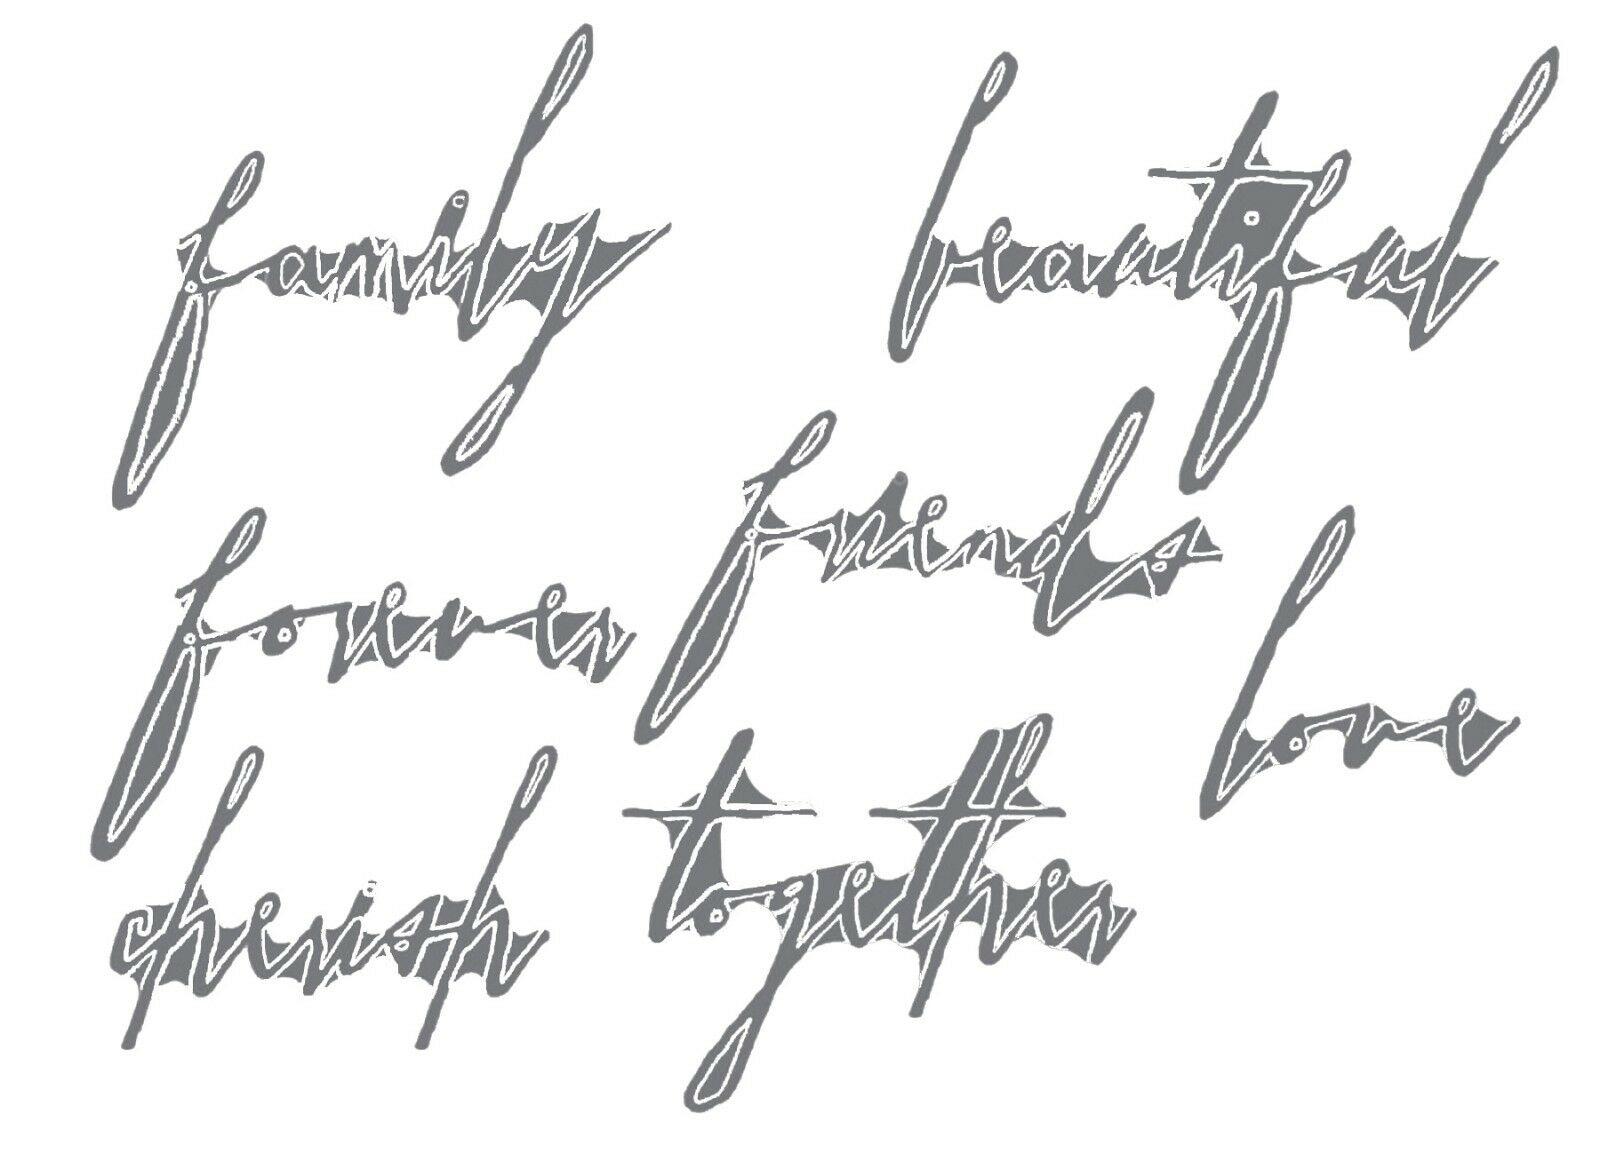 family
beautiful
friends
forever
love
cherish
together